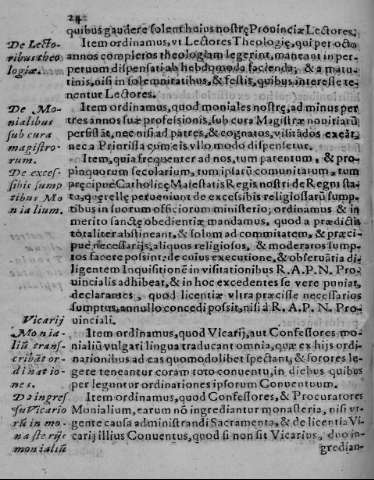 24
quibus gaudere solent huius nostrę Prouinciæ Lectores.
De Lecto-
ribus theo
logiæ.
Item ordinamus, vt Lectores Theologię, qui per octo
annos completos theologiam legerint, maneant in per-
petuum dispensati ab hebdomoda facienda; & a matu-
tinis, nisi in solemnitatibus, & festis, quibus interesse te-
nentur Lectores.
De Mo-
nialibus
sub cura
magistro-
rum.
Item ordinamus, quod moniales nostrę, ad minus per
tres annos suæ professionis, sub cura Magistræ nouitiarũ
persistãt, nec nisi ad patres, & cognatos, visitãdos exeãt,
nec a Priorissa cum eis vllo modo dispensetur.
De exces-
sibus sump
tibus Mo
nialium.
Item, quia frequenter ad nos, tum parentum, & pro-
pinquorum secularium, tum ipsarũ comunitarum, tum
pręcipuę Catholicę Maiestatis Regis nostri de Regni sta-
to, querellę perueniunt de excessibus religiossarũ sump-
tibus in suorum officiorum ministerio; ordinamus & in
merito sanctę obedientiæ mandamus, quod a prædictis
totaliter abstineant, & solum ad commitatem, & præci-
puè necessarijs, aliquos religiosos, & moderatos sump-
tos facere possint: de cuius executione, & obseruãtia di-
ligentem Inquisitionẽ in visitationibus R. A. P. N. Pro-
uincialis adhibeat, & in hoc excedentes se vere puniat,
declarantes, quod licentiæ vltra præcisse necessarios
sumptus, annullo concedi possit, nisi à R. A. P. N. Pro
uinciali.
Vicarij
Monia-
liũ transs-
cribãt or-
dinatio-
nes.
Item ordinamus, quod Vicarij, aut Confessores mo-
nialiũ vulgari lingua traducant omnia, quæ ex hijs ordi-
nationibus ad eas quomodolibet spectant, & sorores le-
gere teneantur coram toto conuentu, in diebus quibus
per leguntur ordinationes ipsorum Conuentuum.
De ingres
su Vicario
rũ in mo-
nasterijs
monialiũ
Item ordinamus, quod Confessores, & Procuratores
Monialium, earum nõ ingrediantur monasteria, nisi vr-
gente causa administrandi Sacramenta, & de licentia Vi-
carij illius Conuentus, quod si non sit Vicarius, duo in-
gredian-